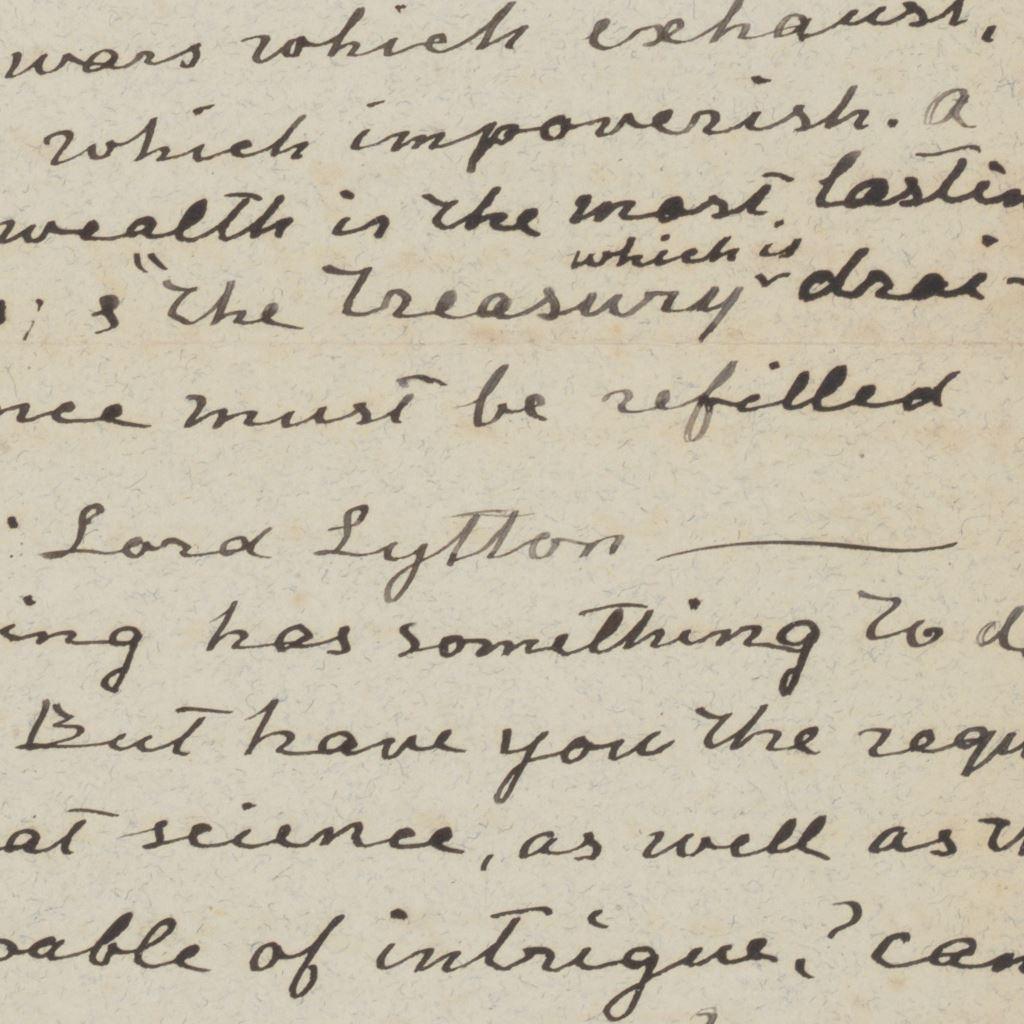 wars which exhaust,
which impoverish. A
wealth is the most lastin
which is
; & "the Treasury drai-
nce must be refilled
Lord Lytton —
ing has something to d
But have you the requ
at science, as well as th
pable of intrigue? can